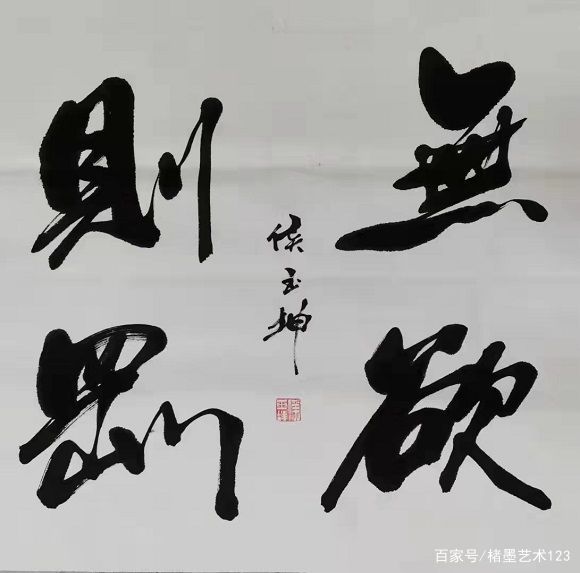 無欲
則剛
侯玉坤
百家号/楮墨艺术123